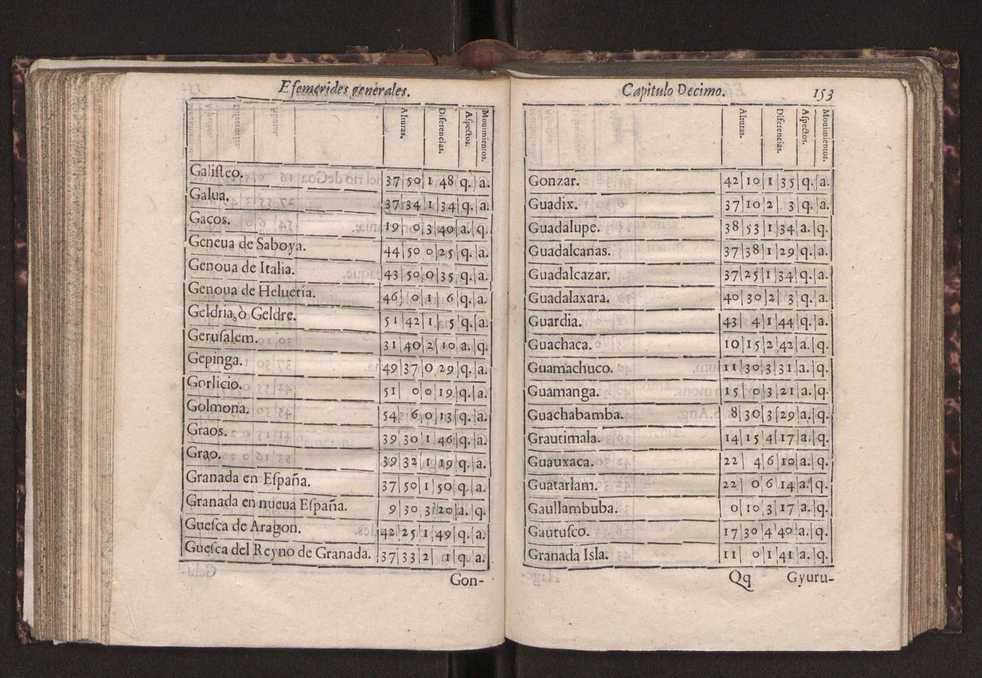 Efemerides generales.
Alturas. Diferencias. Aspectos. Mouimientos.
Galisteo. 37 50 1 48 q. a.
Galua. 37 34 1 34 q. a.
Gaços. 19 0 3 40 a. q.
Geneua de Saboya. 44 50 0 25 q. a.
Genoua de Italia. 43 50 0 35 q. a.
Genoua de Heluetia. 46 0 1 6 q. a.
Geldria, ò Geldre. 51 42 1 5 q. a.
Gerusalem. 31 40 2 10 a. q.
Gepinga. 49 37 0 29 q. a.
Gorlicio. 51 0 0 19 q. a.
Golmona. 54 6 0 13 q. a.
Graos. 39 30 1 46 q. a.
Grao. 39 32 1 19 q. a.
Granada en España. 37 50 1 50 q. a.
Granada en nueua España. 9 30 3 20 a. q.
Guesca de Aragon. 42 25 1 49 q. a.
Guesca del Reyno de Granada. 37 33 2 1 q. a.
Gon-
Capitulo Decimo. 153
Alturas. Diferencias. Aspectos. Mouimientos.
Gonzar. 42 10 1 35 q. a.
Guadix. 37 10 2 3 q. a.
Guadalupe. 38 53 1 34 a. q.
Guadalcanas. 37 38 1 29 q. a.
Guadalcazar. 37 25 1 34 q. a.
Guadalaxara. 40 30 2 3 q. a.
Guardia. 43 4 1 44 q. a.
Guachaca. 10 15 2 42 a. q.
Guamachuco. 11 30 3 31 a. q.
Guamanga. 15 0 3 21 a. q.
Guachabamba. 8 30 3 29 a. q.
Grautimala. 14 15 4 17 a. q.
Guauxaca. 22 4 6 10 a. q.
Guatarlam. 22 0 6 14 a. q.
Gaullambuba. 0 10 3 17 a. q.
Gautusco. 17 30 4 40 a. q.
Granada Isla. 11 0 1 41 a. q.
Qq Gyuru-